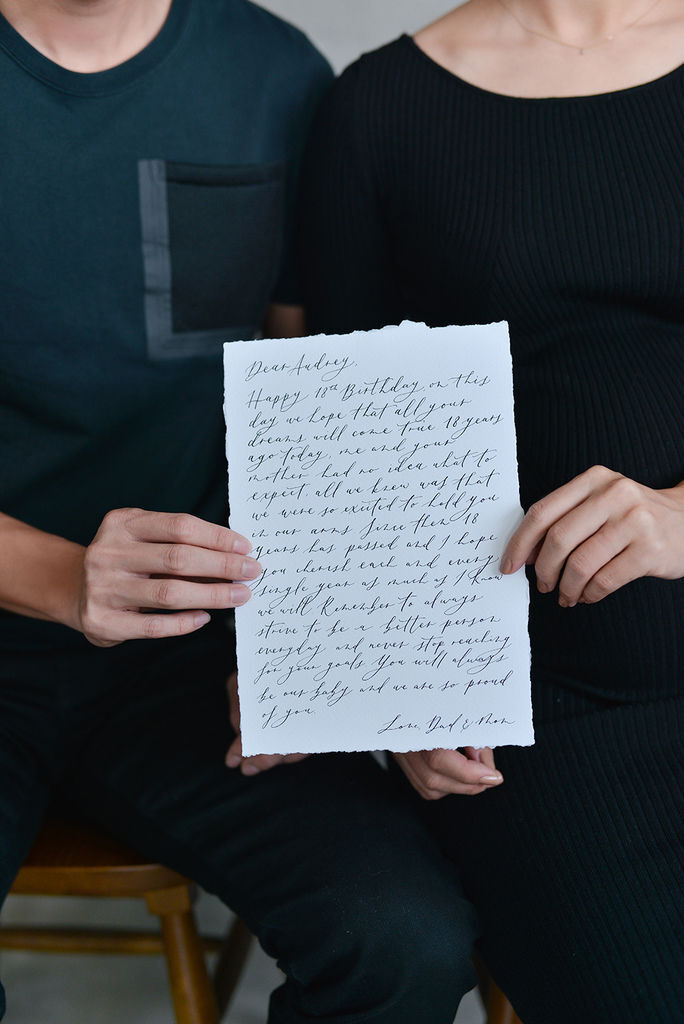 Dear Audrey,
Happy 18th Birthday, on this
day we hope that all your
dreams will come true. 18 years
ago today, me and your
mother had no idea what to
expect, all we knew was that
we were so excited to hold you
in our arms. Since then 18
years has passed and I hope
you cherish each and every
single year as much as I know
we will. Remember to always
strive to be a better person
everyday and never stop reaching
for your goals. You will always
be our baby and we are so proud
of you.
Love, Dad & Mom